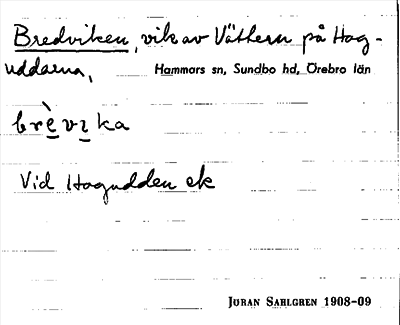 Bredviken, vik av Vättern på Hag-
uddarna,
Hammars sn, Sundbo hd, Örebro län
brèvıka
Vid Hagudden ek
JÖRAN SAHLGREN 1908-09